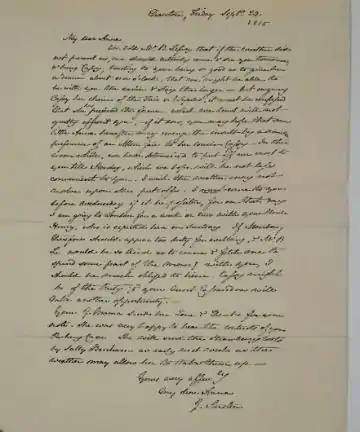 Chawton, Friday Septr 29.
1815
My dear Anna
We told Mr B. Lefroy that if the weather did
not prevent us, we should certainly come & see you tomorrow,
& bring Cassy, trusting to your being so good as to give her
a dinner about one o'clock, that we might be able to
be with you the earlier & stay the longer - but on giving
Cassy her choice of the Fair or
that she has preferred the former, which we trust will not
greatly affront you; - if it does, you may hope that some
little Anna hereafter may revenge the insult by a similar
preference of an Alton fair to her Cousin Cassy. - In the
mean while, we have determined to put off our visit to
you till Monday, which we hope will be not less
convenient to you. - I wish the weather may not
resolve upon other put offs. I must come to you
before Wednesday if it be possible, for on that day
I am going to London for a week or two with your Uncle
Henry, who is expected here on Sunday. If Monday
therefore should appear too dirty for walking, & Mr B.
L. would be so kind as to come & fetch me to
spend some part of the morng with you, I
should be much obliged to him. Cassy might
be of the Party, & your Aunt Cassandra will
take another opportunity. -
Your G. Mama sends her Love & Thanks for your
note. She was very happy to hear the contents of your
Packing Case. - She will send the Strawberry roots
by Sally Benham, as early next week as the
weather may allow her to take them up. -
Yours very affecly
My dear Anna
J. Austen